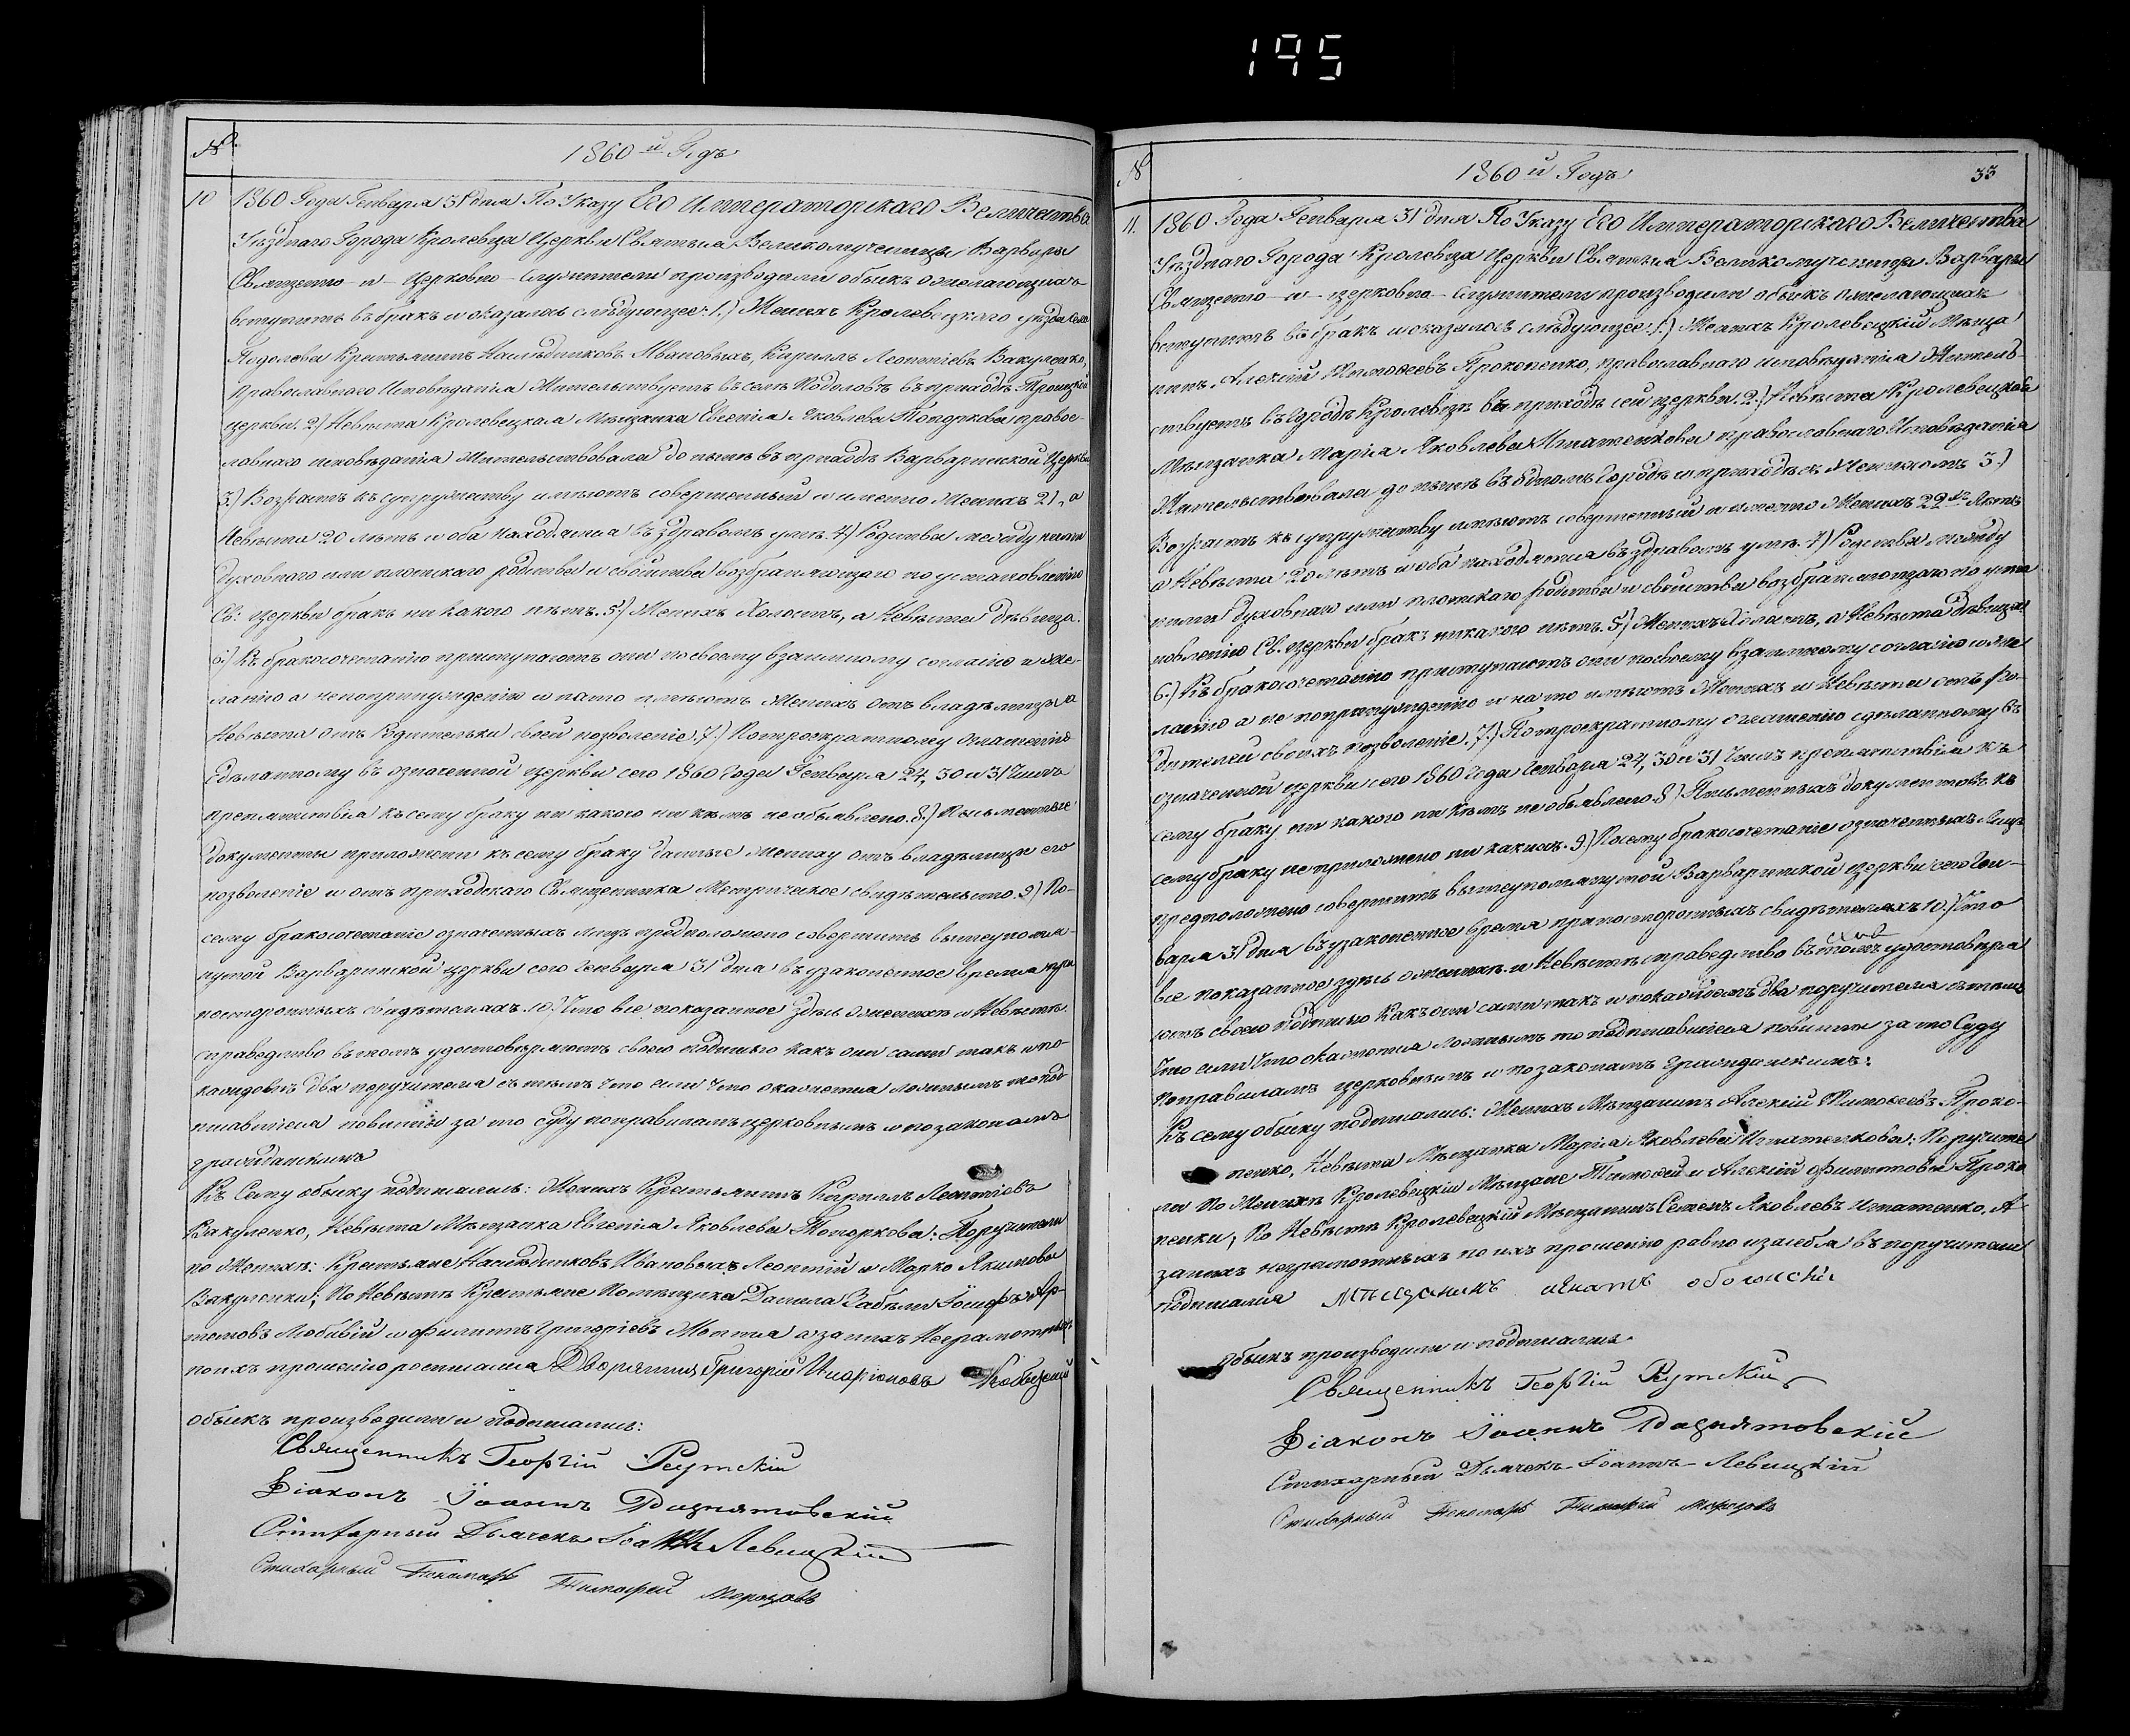 195
№
1860й Годъ
10 1860 Года Генваря 31 дня По Указу Его Императорскаго Величества
Уѣзднаго Города Кролевца Церкви Святыя Великомученицы Варвары
Священно и Церковно-служители производили обыскъ о желающихъ
вступить въ бракъ и оказалось слѣдующее: 1.) Женихъ Кролевецкаго уѣзда села
Подолова Крестьянинъ Наслѣдниковъ Ивановыхъ, Кирилъ Леонтіевъ Вакуленко,
Православнаго Исповѣданія Жительствуетъ въ селѣ Подоловѣ въ приходѣ Троицкой
церкви. 2.) Невѣста Кролевецкая Мѣщанка Евгенія Яковлева Топоркова правос-
лавнаго исповѣданія Жительствовала до нынѣ въ приходѣ Варваринской Церкви
3.) Возрастъ къ супружеству имѣютъ совершенный и именно Женихъ 21, а
Невѣста 20 лѣтъ и оба находятся въ здравомъ умѣ. 4.) Родства между ними
духовнаго или плотскаго родства и свойства возбраняющаго по установленію
Св: церкви бракъ ни какого нѣтъ. 5.) Женихъ Холостъ, а Невѣста дѣвица.
6.) Къ бракосочетанію приступаютъ они по своему взаимному согласію и же-
ланію а не по принужденію и на то имѣютъ Женихъ отъ владѣлицы а
Невѣста отъ Родительки своей позволеніе. 7.) По троекратному оглашенію
сдѣланному въ означенной церкви сего 1860 года Генваря 24, 30 и 31 Чиселъ
препятствія къ сему браку ни какого ни кѣмъ не объявлено. 8.) Письменные
документы приложены къ сему браку данные Жениху отъ владѣлицы его
позволеніе и отъ приходскаго Священника Метрическое свидѣтельство. 9.) По-
сему бракосочетаніе означенныхъ лицъ предположено совершить вышеупомя-
нутой Варваринской церкви сего Генваря 31 дня въ узаконенное время при
постороннихъ свидѣтеляхъ. 10.) Что все показанное здѣсь о женихѣ и Невѣстѣ
справедливо въ томъ удостовѣряютъ своею подписью какъ они сами такъ и по
каждомъ два поручителя съ тѣмъ что если что окажется ложнымъ то под
писавшіеся повинны за то суду по правиламъ церковнымъ и по законамъ
гражданскимъ
Къ Сему обыску подписались: Женихъ Крестьянинъ Кирилъ Леонтіевъ
Вакуленко, Невѣста Мѣщанка Евгенія Яковлева Топоркова: Поручители
по Женихѣ: Крестьяне Наслѣдниковъ Ивановыхъ Леонтій и Марко Якимовы
Вакуленки; По Невѣстѣ Крестьяне Помѣщика Данила Забѣлы Іосифъ Ар-
темовъ и Филиппъ Григоріевъ а за нихъ Неграмотныхъ
по ихъ прошенію росписался Дворянинъ Григорій
обыскъ производили и подписались:
Священникъ Георгій Реутскій
Діаконъ Іоаннъ
Стихарный Дьячекъ Іоаннъ Левицкій
Стихарный Пономарь Тимофей Морозовъ
№
1860й Годъ
33
11. 1860 Года Генваря 31 дня По Указу Его Императорскаго Величества
Уѣзднаго Города Кролевца Церкви Святыя Великомученицы Варвары
Священно-и-церковно-служители производили обыскъ о желающихъ
вступить въ бракъ и оказалось слѣдующее: 1.) Женихъ Кролевецкій Мѣща
нинъ Алексій Тимофеевъ Прокопенко, православнаго исповѣданія Житель-
ствуетъ въ Городѣ Кролевцѣ въ приходѣ сей церкви. 2.) Невѣста Кролевецкая
Мѣщанка Марія Яковлева Игнатенкова православнаго Исповѣданія
Жительствовала до нынѣ въ одномъ Городѣ и приходѣ съ Женихомъ 3.)
Возрастъ къ супружеству имѣютъ совершенный и именно Женихъ 22хъ Лѣтъ
а Невѣста 20 лѣтъ и оба находятся въ здравомъ умѣ. 4.) Родства между
ними духовнаго или плотскаго родства и свойства возбраняющаго по уста
новленію Св. церкви бракъ никакого нѣтъ. 5.) Женихъ Холостъ, а Невѣста дѣвица
6.) Къ бракосочетанію приступаютъ они по своему взаимному согласію и же
ланію а не по принужденію и на то имѣютъ Женихъ и Невѣста отъ ро-
дителей своихъ позволеніе. 7.) По троекратному оглашенію сдѣланному въ
означенной церкви сего 1860 года Генваря 24, 30 и 31 Чиселъ препятствія къ
сему браку ни какого ни кѣмъ не объявлено 8.) Письменныхъ документовъ къ
сему браку не приложено ни какихъ. 9.) Посему бракосочетаніе означенныхъ Лицъ
предположено совершить вышеупомянутой Варваринской церкви сего Ген-
варя 31 дня въ узаконенное время при постороннихъ свидѣтеляхъ 10.) Что
все показанное здѣсь о женихѣ и Невѣстѣ справедливо въ томъ удостовѣря
ютъ своею подписью Какъ они сами такъ и по каждомъ два поручителя съ тѣмъ
Что если Что окажется ложнымъ то подписавшіеся повинны за то Суду
По правиламъ церковнымъ и по законамъ гражданскимъ:
Къ сему обыску подписались: Женихъ Мѣщанинъ Алексій Тимофеевъ Проко-
пенко, Невѣста Мѣщанка Марія Яковлева Игнатенкова: Поручите
ли По Женихѣ Кролевецкіи Мѣщане Тимофей и Алексій Филиповы Проко
пенки, По Невѣстѣ Кролевецкій Мѣщанинъ Семенъ Яковлевъ Игнатенко, А
за нихъ неграмотныхъ по ихъ прошенію равно и за себя въ поручители
подписался мпещанинъ игнатъ
Обыскъ производили и подписались
Священникъ Георгій Реутскій
Діаконъ Іоаннъ
Стихарный Дьячекъ-Іоаннъ-Левицкій
Стихарный Пономарь Тимофей Морозовъ